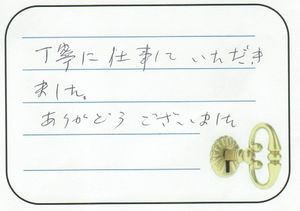 丁寧に仕事して いただき
ました。
ありがとう ございました